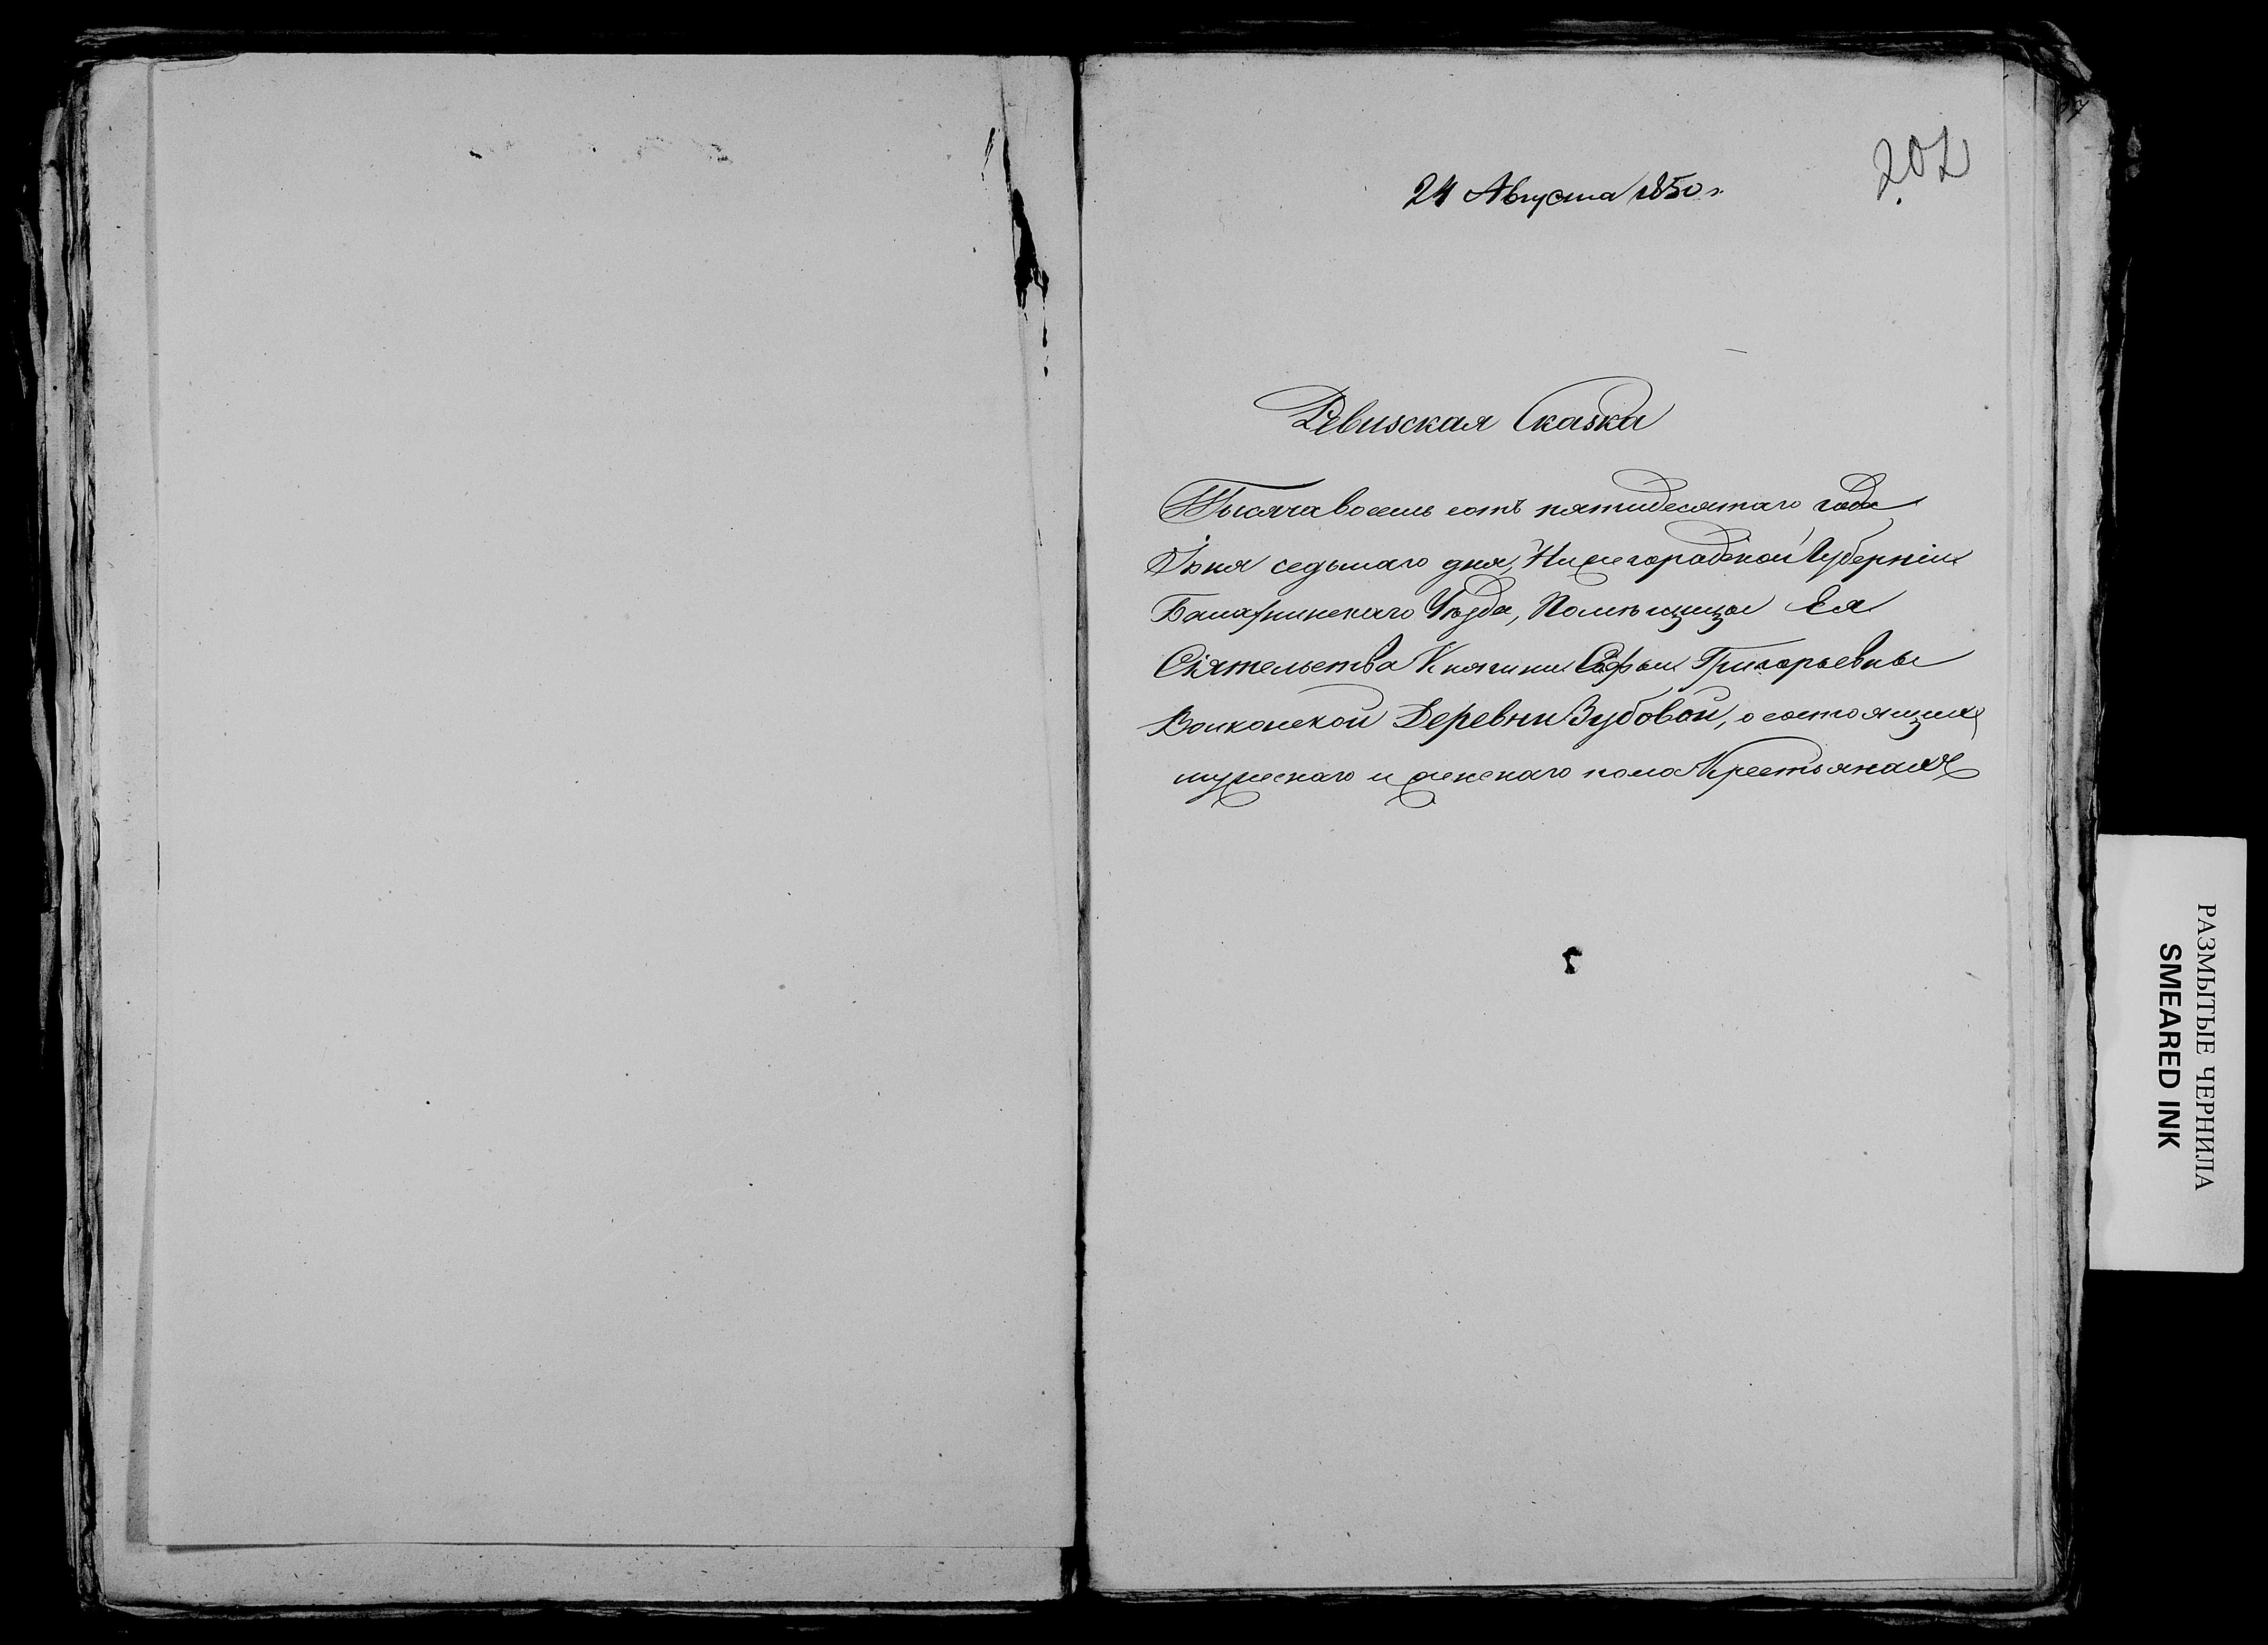 202
24 Августа 1850 г.
Ревизская Сказка
Тысяча восемь сотъ пятидесятаго года
Іюня седьмаго дня, Нижегородской Губерніи
Балахнинскаго Уѣзда, Помѣщицы Ея
Сіятельства Княгини Софьи Григорьевны
Волконской Деревни Зубовой, о состоящихъ
мужескаго и женскаго пола Крестьянахъ
РАЗМЫТЫЕ ЧЕРНИЛА
SMEARED INK